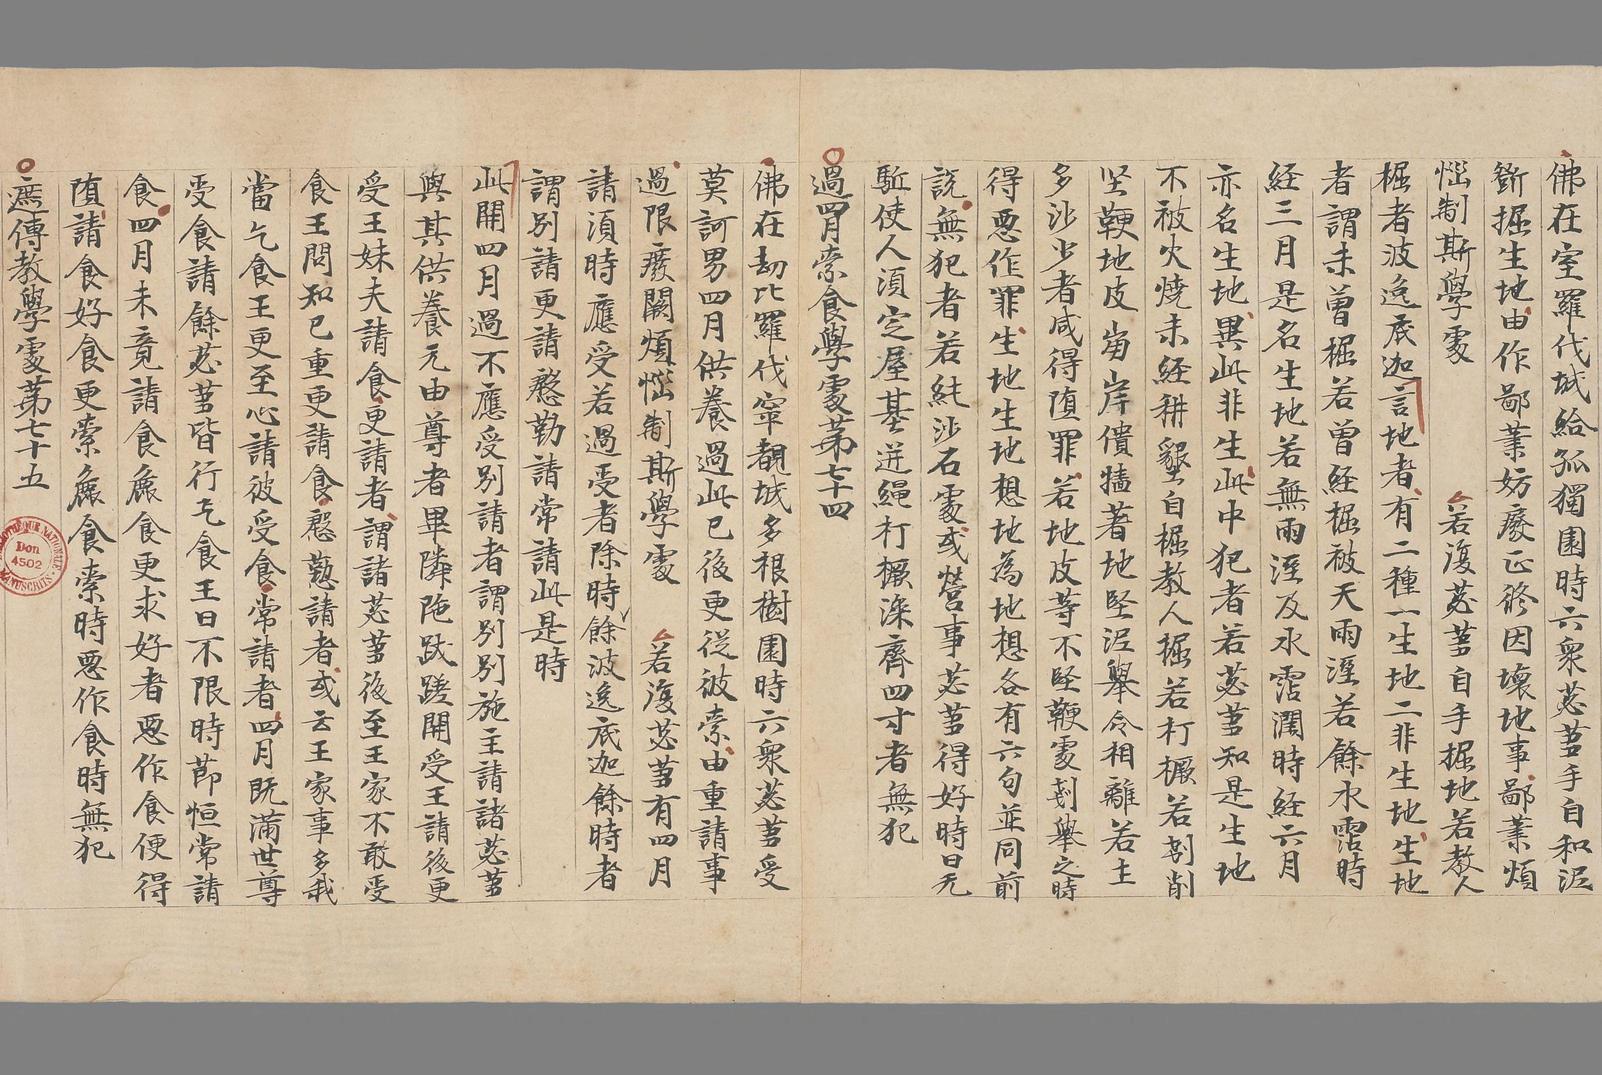 佛在室羅伐城給孤獨園時六衆苾芻手自和泥
斵掘生地由作鄙業妨廢正修因壞地事鄙業煩
惱制斯學處 若復苾芻自手掘地若教人
掘者波逸底迦言地者有二種一生地二非生地生地
者謂未曾掘若曾經掘被天雨溼若餘水霑時
経三月是名生地若無雨溼及水霑潤時経六月
亦名生地異此非生此中犯者若苾芻知是生地
不被火燒未経耕墾自掘教人掘若打橛若剗削
坚鞕地皮崗岸僓墻著地坚泥舉令相離若土
多沙少者咸得墮罪若地皮等不坚鞕處剗舉之時
得惡作罪生地生地想地為地想各有六句並同前
說無犯者若純沙石處或營事苾芻得好時日无
駈使人須定屋基迸繩打橛深齊四寸者無犯
過四月索食學處第七十四
佛在劫比羅伐窣覩城多根樹園時六衆苾芻受
莫訶男四月供養過此已後更從彼索由重請事
過限癈闕煩惱制斯學處 若復苾芻有四月
請須時應受若過受者除時餘波逸底迦餘時者
謂別請更請慇勤請常請此是時
此開四月過不應受別請者謂別別施主請諸苾芻
與其供養元由尊者畢隣陁跋蹉開受王請後更
受王妹夫請食更請者謂諸苾芻後至王家不敢受
食王問知已重更請食慇懃請者或云王家事多我
當乞食王更至心請彼受食常請者四月既滿世尊
受食請餘苾芻皆行乞食王曰不限時節恒常請
食四月未竟請食麁食更求好者惡作食便得
墮請食好食更索麁食索時惡作食時無犯
遮傳教學處第七十五
BIBLIOTHÈQUE NATIONALE
Don
4502
MANUSCRITS